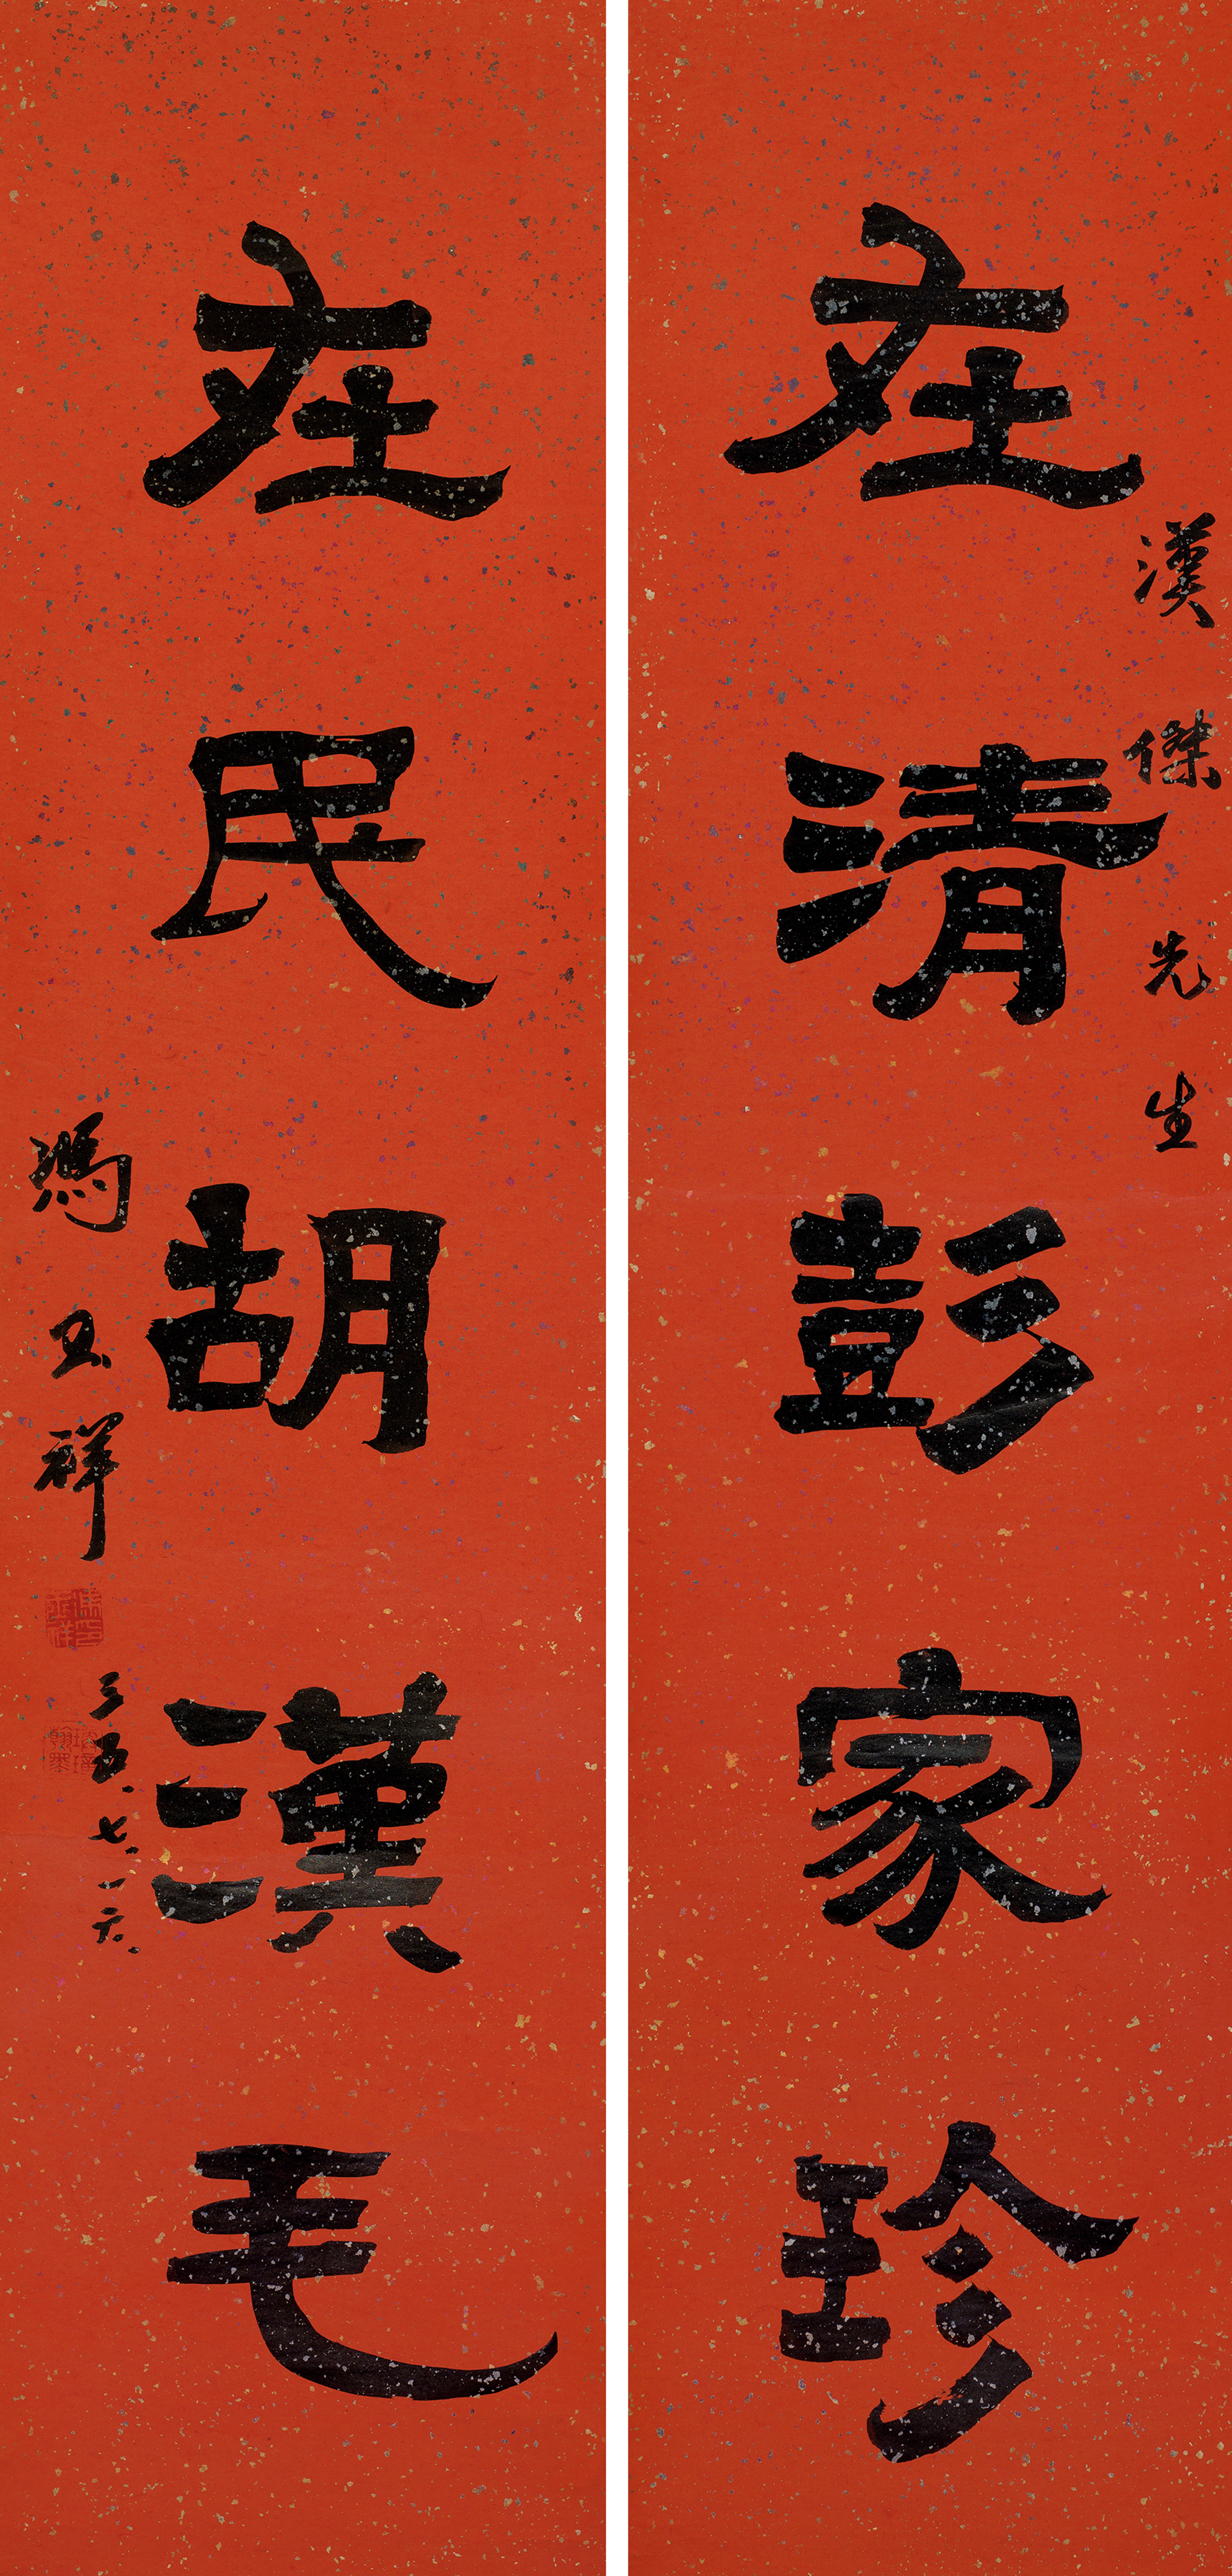 漢傑先生
在清彭家珍
在民胡漢毛
馮玉祥
三五、七、一六、